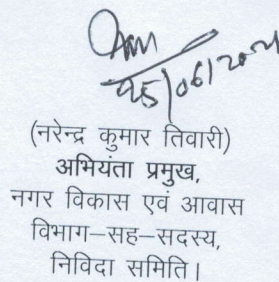 25/06/2021
(नरेन्द्र कुमार तिवारी)
अभियंता प्रमुख,
नगर विकास एवं आवास
विभाग–सह–सदस्य,
निविदा समिति।